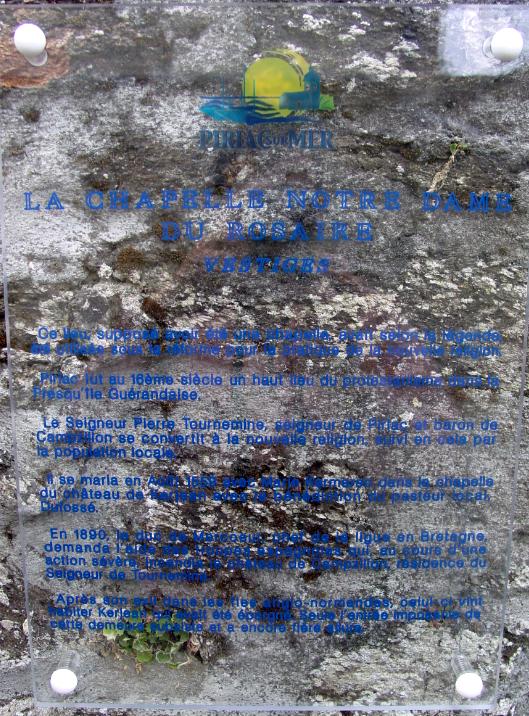 PIRIAC SUR MER
LA CHAPELLE NOTRE DAME
DU ROSAIRE
VESTIGES
Ce lieu, supposé avoir été une chapelle, avait selon la légende
été utilisée sous la réforme pour la pratique de la nouvelle religion
Piriac fut au 16ème siècle un haut lieu du protestantisme dans la
Presqu'île Guérandaise.
Le Seigneur Pierre Tournemine, seigneur de Piriac et baron de
Campzillon se convertit à la nouvelle religion, suivi en cela par
la population locale.
Il se maria en Août 1559 avec Marie Kermareo dans la chapelle
du château de Kerjean avec la bénédiction du pasteur local,
Dufossé.
En 1590, le duc de Mercoeur, chef de la ligue en Bretagne,
demanda l'aide des troupes espagnoles qui, au cours d'une
action sévère, incendia le château de Campzillon, résidence du
Seigneur de Tournemine.
Après son exil dans les îles anglo-normandes, celui-ci vint
habiter Kerjean qui avait été épargné. Seule l'entrée imposante de
cette demeure subsiste et a encore fière allure.